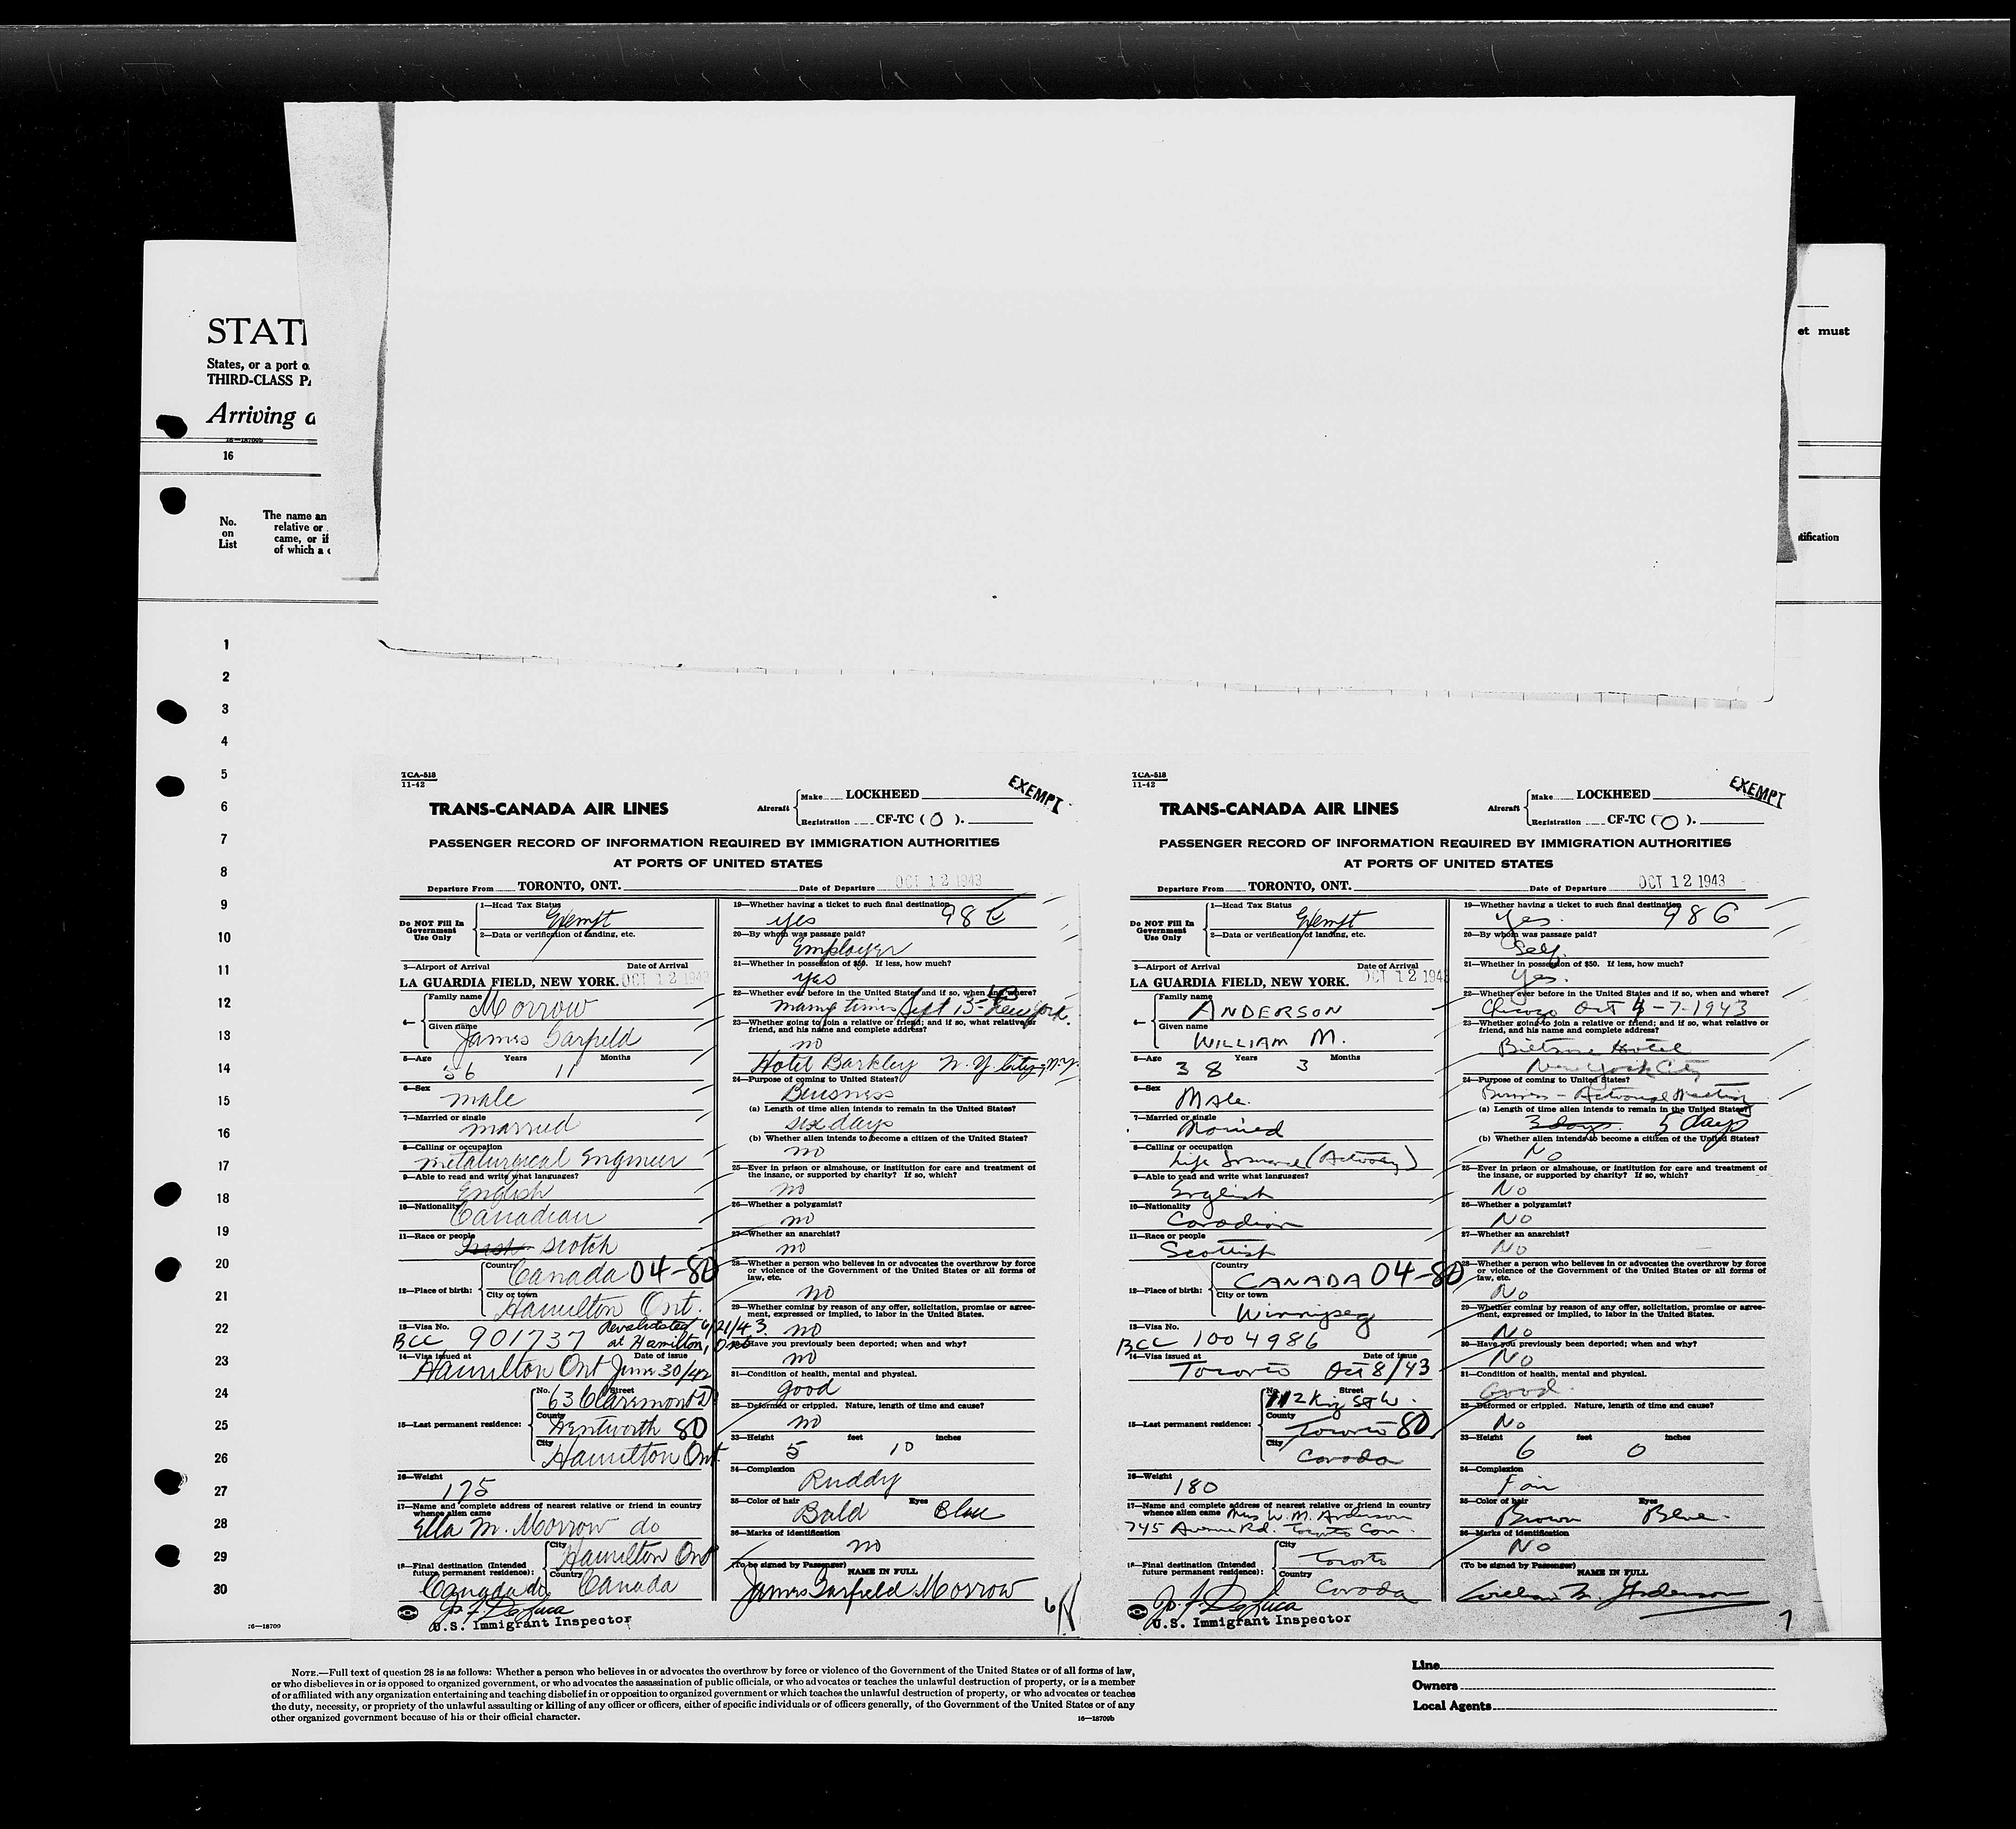 STAT
States, or a port o
THIRD-CLASS PA
Arriving a
16—18709b
16
No.
on
List
The name an
relative or
came, or if
of which a c
et must
tification
1
2
3
4
5
6
7
8
9
10
11
12
13
14
15
16
17
18
19
20
21
22
23
24
25
26
27
28
29
30
16—18709
TCA-518
11-42
EXEMPT
TRANS-CANADA AIR LINES
Aircraft
Make LOCKHEED
Registration CF-TC (O).
PASSENGER RECORD OF INFORMATION REQUIRED BY IMMIGRATION AUTHORITIES
AT PORTS OF UNITED STATES
Departure From TORONTO, ONT. Date of Departure OCT 12 1943
Do NOT Fill In
Government
Use Only
1—Head Tax Status
Exempt
2—Data or verification of landing, etc.
3—Airport of Arrival Date of Arrival
LA GUARDIA FIELD, NEW YORK. OCT 12 1943
4—
Family name Morrow
Given name
James Garfield
5—Age Years Months
56 11
6—Sex
male
7—Married or single
married
8—Calling or occupation
metalurgical Engineer
9—Able to read and write what languages?
English
10—Nationality
Canadian
11—Race or people
Irish Scotch
12—Place of birth:
Country
Canada 04-80
City or town
Hamilton Ont.
13—Visa No. Revalidated 6/21/43
BCC 901737 at Hamilton, Ont
14—Visa issued at Date of issue
Hamilton Ont June 30/42
15—Last permanent residence:
No. Street
63 Claremont D
County
Wentworth 80
City
Hamilton Ont.
16—Weight
175
17—Name and complete address of nearest relative or friend in country
whence alien came
Ella M. Morrow do
18—Final destination (Intended
future permanent residence):
City
Hamilton Ont
Country
Canada do Canada
J. F. DeLuca
U.S. Immigrant Inspector
19—Whether having a ticket to such final destination
yes 986
20—By whom was passage paid?
Employer
21—Whether in possession of $50. If less, how much?
yes
22—Whether ever before in the United States and if so, when and where?
many times Sept 13-43 New York.
23—Whether going to join a relative or friend; and if so, what relative or
friend, and his name and complete address?
no
Hotel Barkley N.Y. City, N.Y.
24—Purpose of coming to United States?
Buisness
(a) Length of time alien intends to remain in the United States?
six days
(b) Whether alien intends to become a citizen of the United States?
no
25—Ever in prison or almshouse, or institution for care and treatment of
the insane, or supported by charity? If so, which?
no
26—Whether a polygamist?
no
27—Whether an anarchist?
no
28—Whether a person who believes in or advocates the overthrow by force
or violence of the Government of the United States or all forms of
law, etc.
no
29—Whether coming by reason of any offer, solicitation, promise or agree-
ment, expressed or implied, to labor in the United States.
no
30—Have you previously been deported; when and why?
no
31—Condition of health, mental and physical.
good
32—Deformed or crippled. Nature, length of time and cause?
no
33—Height feet inches
5 10
34—Complexion
Ruddy
35—Color of hair Eyes
Bald Blue
36—Marks of identification
no
(To be signed by Passenger)
NAME IN FULL
James Garfield Morrow
6
TCA-518
11-42
EXEMPT
TRANS-CANADA AIR LINES
Aircraft
Make LOCKHEED
Registration CF-TC (O).
PASSENGER RECORD OF INFORMATION REQUIRED BY IMMIGRATION AUTHORITIES
AT PORTS OF UNITED STATES
Departure From TORONTO, ONT. Date of Departure OCT 12 1943
Do NOT Fill In
Government
Use Only
1—Head Tax Status
Exempt
2—Data or verification of landing, etc.
3—Airport of Arrival Date of Arrival
LA GUARDIA FIELD, NEW YORK. OCT 12 1943
4—
Family name
ANDERSON
Given name
WILLIAM M.
5—Age Years Months
38 3
6—Sex
Male.
7—Married or single
Married
8—Calling or occupation
Life Insurance (Actuary)
9—Able to read and write what languages?
English
10—Nationality
Canadian
11—Race or people
Scottish
12—Place of birth:
Country
CANADA 04-80
City or town
Winnipeg
13—Visa No.
BCC 1004986
14—Visa issued at Date of issue
Toronto Oct 8/43
15—Last permanent residence:
No. Street
112 King St W.
County
Toronto 80
City
Canada
16—Weight
180
17—Name and complete address of nearest relative or friend in country
whence alien came Mrs W. M. Anderson
745 Avenue Rd. Toronto Can.
18—Final destination (Intended
future permanent residence):
City
Toronto
Country
Canada
J. F. DeLuca
U.S. Immigrant Inspector
19—Whether having a ticket to such final destination
Yes. 986
20—By whom was passage paid?
Self.
21—Whether in possession of $50. If less, how much?
Yes.
22—Whether ever before in the United States and if so, when and where?
Chicago Oct 4-7-1943
23—Whether going to join a relative or friend; and if so, what relative or
friend, and his name and complete address?
Biltmore Hotel
New York City
24—Purpose of coming to United States?
Business - Actuarial Meeting
(a) Length of time alien intends to remain in the United States?
3 days. 5 days
(b) Whether alien intends to become a citizen of the United States?
No
25—Ever in prison or almshouse, or institution for care and treatment of
the insane, or supported by charity? If so, which?
No
26—Whether a polygamist?
No
27—Whether an anarchist?
No
28—Whether a person who believes in or advocates the overthrow by force
or violence of the Government of the United States or all forms of
law, etc.
No
29—Whether coming by reason of any offer, solicitation, promise or agree-
ment, expressed or implied, to labor in the United States.
No
30—Have you previously been deported; when and why?
No
31—Condition of health, mental and physical.
Good.
32—Deformed or crippled. Nature, length of time and cause?
No
33—Height feet inches
6 0
34—Complexion
Fair
35—Color of hair Eyes
Brown Blue.
36—Marks of identification
No
(To be signed by Passenger)
NAME IN FULL
William M. Anderson
7
NOTE.—Full text of question 28 is as follows: Whether a person who believes in or advocates the overthrow by force or violence of the Government of the United States or of all forms of law,
or who disbelieves in or is opposed to organized government, or who advocates the assassination of public officials, or who advocates or teaches the unlawful destruction of property, or is a member
of or affiliated with any organization entertaining and teaching disbelief in or opposition to organized government or which teaches the unlawful destruction of property, or who advocates or teaches
the duty, necessity, or propriety of the unlawful assaulting or killing of any officer or officers, either of specific individuals or of officers generally, of the Government of the United States or of any
other organized government because of his or their official character.
16—18709b
Line
Owners
Local Agents